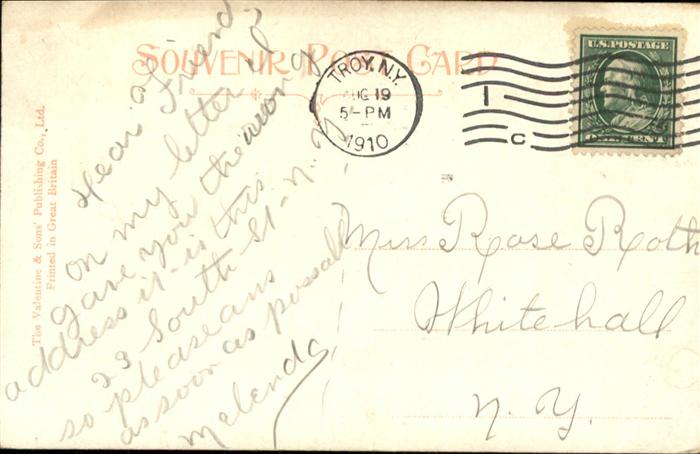 SOUVENIR POST CARD
TROY, N.Y.
AUG 19
5-PM
1910
1
C
U.S. POSTAGE
The Valentine & Sons' Publishing Co., Ltd.
Printed in Great Britain
Dear Friend
on my letter I
gave you the wrong
address it is this
23 South St - N. Y
so please ans
as soon as possable
Miss Rose Roth
Whitehall
N. Y.